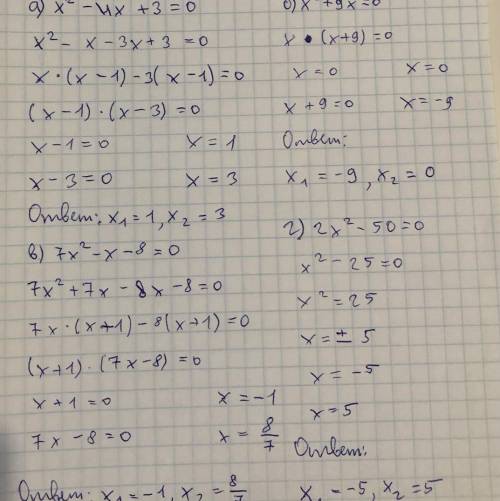 а) x² - 4x + 3 = 0
x² - x - 3x + 3 = 0
x · (x - 1) - 3(x - 1) = 0
(x - 1) · (x - 3) = 0
x - 1 = 0 x = 1
x - 3 = 0 x = 3
Ответ: x₁ = 1, x₂ = 3
б) x² + 9x = 0
x · (x + 9) = 0
x = 0 x = 0
x + 9 = 0 x = -9
Ответ:
x₁ = -9, x₂ = 0
в) 7x² - x - 8 = 0
7x² + 7x - 8x - 8 = 0
7x · (x + 1) - 8(x + 1) = 0
(x + 1) · (7x - 8) = 0
x + 1 = 0 x = -1
7x - 8 = 0 x = 8/7
Ответ: x₁ = -1, x₂ = 8/7
г) 2x² - 50 = 0
x² - 25 = 0
x² = 25
x = ± 5
x = -5
x = 5
Ответ:
x₁ = -5, x₂ = 5